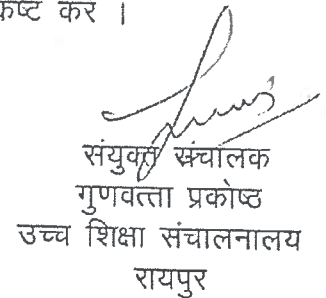 कष्ट कर ।
संयुक्त संचालक
गुणवत्ता प्रकोष्ठ
उच्च शिक्षा संचालनालय
रायपुर